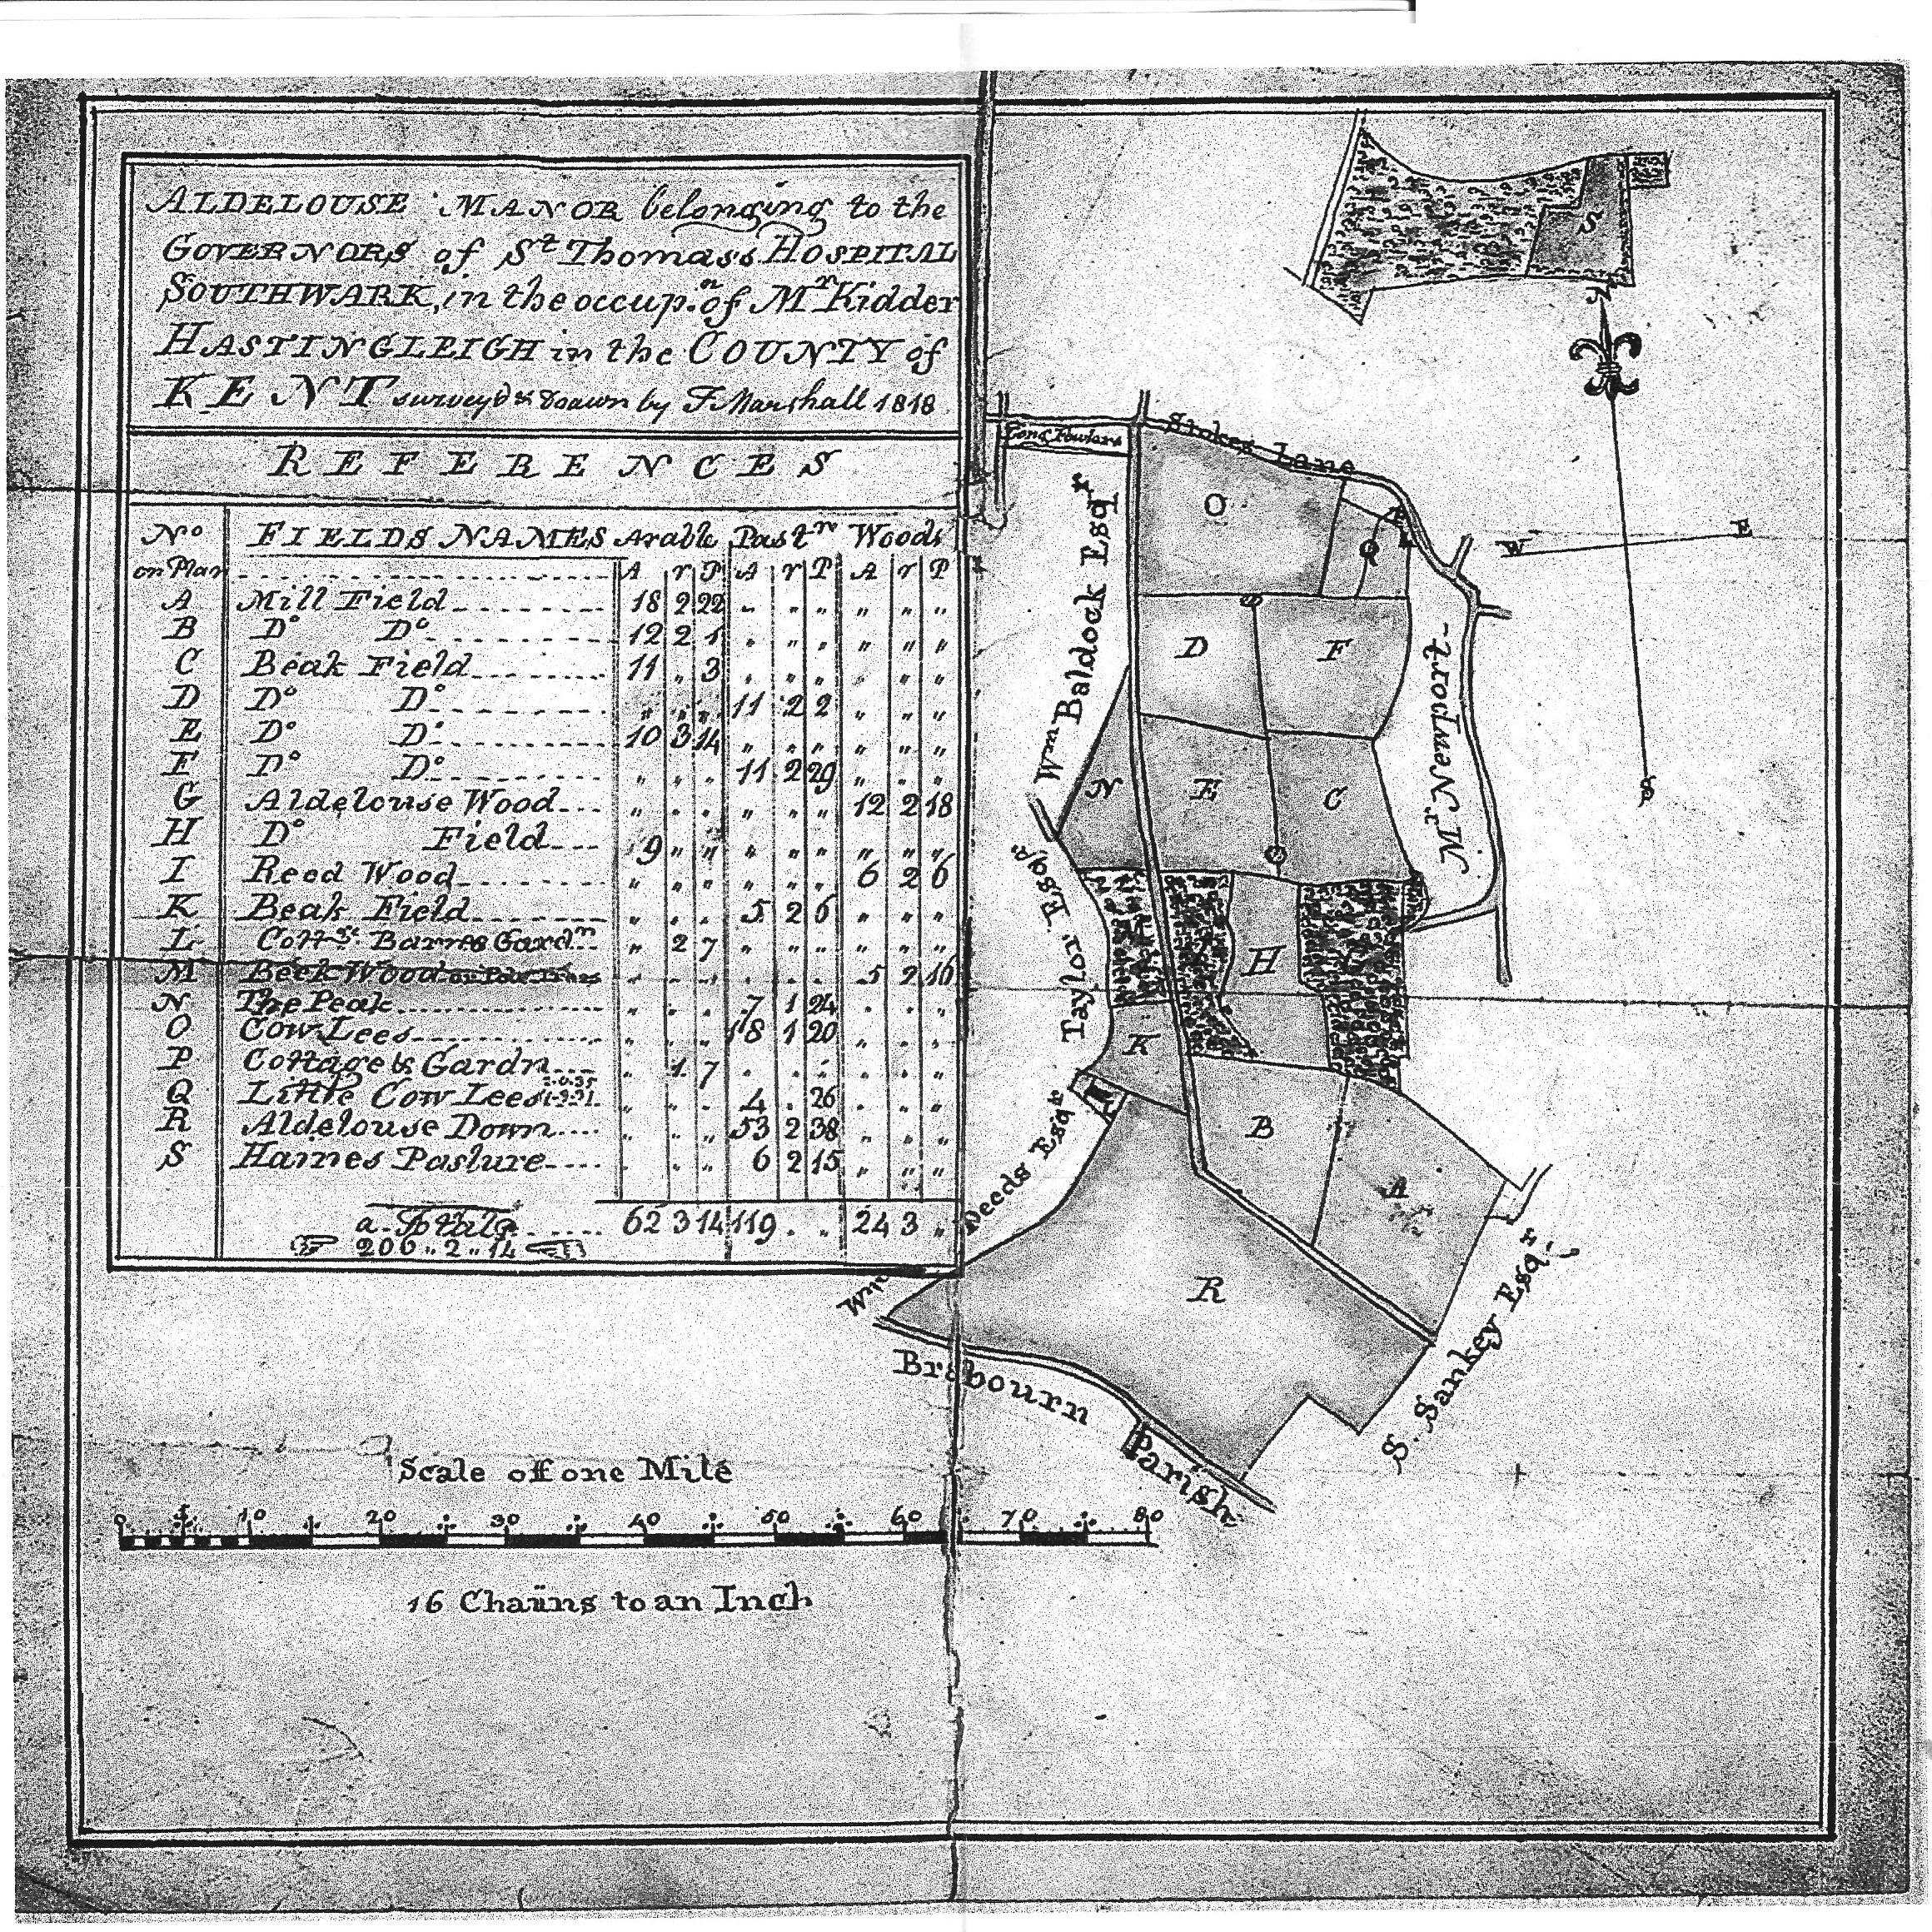 ALDELOUSE MANOR belonging to the
GOVERNORS of St Thomass HOSPITAL
SOUTHWARK, in the occup.n of Mr Kidder
HASTINGLEIGH in the COUNTY of
KENT survey'd & Drawn by F Marshall 1818
REFERENCES
No on Plan FIELDS NAMES Arable Pastre Woods
A r P A r P A r P
A Mill Field 18 2 22 " " " " " "
B Do Do 12 2 1 " " " " " "
C Beak Field 11 " 3 " " " " " "
D Do Do " " " 11 2 2 " " "
E Do Do 10 3 14 " " " " " "
F Do Do " " " 11 2 29 " " "
G Aldelouse Wood " " " " " " 12 2 18
H Do Field 9 " " " " " " " "
I Reed Wood " " " " " " 6 2 6
K Beak Field " " " 5 2 6 " " "
L Cottge Barnes Gardn " 2 7 " " " " " "
M Beek Wood " " " " " " 5 2 16
N The Peak " " " 7 1 24 " " "
O Cow Lees " " " 18 1 20 " " "
P Cottage & Gardn " 1 7 " " " " " "
Q Little Cow Lees " " " 4 " 26 " " "
R Aldelouse Down " " " 53 2 38 " " "
S Haines Pasture " " " 6 2 15 " " "
62 3 14 119 " " 24 3 "
206 " 2 " 14
S
N
W E
S
Long Fowlars
Stokes Lane
Wm Baldock Esqr
O
Q
L
D
F
Mr Newport
N
E
C
Taylor Esqr
H
K
B
A
Wm Deeds Esqr
R
S. Sankey Esqr
Brabourn Parish
Scale of one Mile
0 5 10 20 30 40 50 60 70 80
16 Chains to an Inch